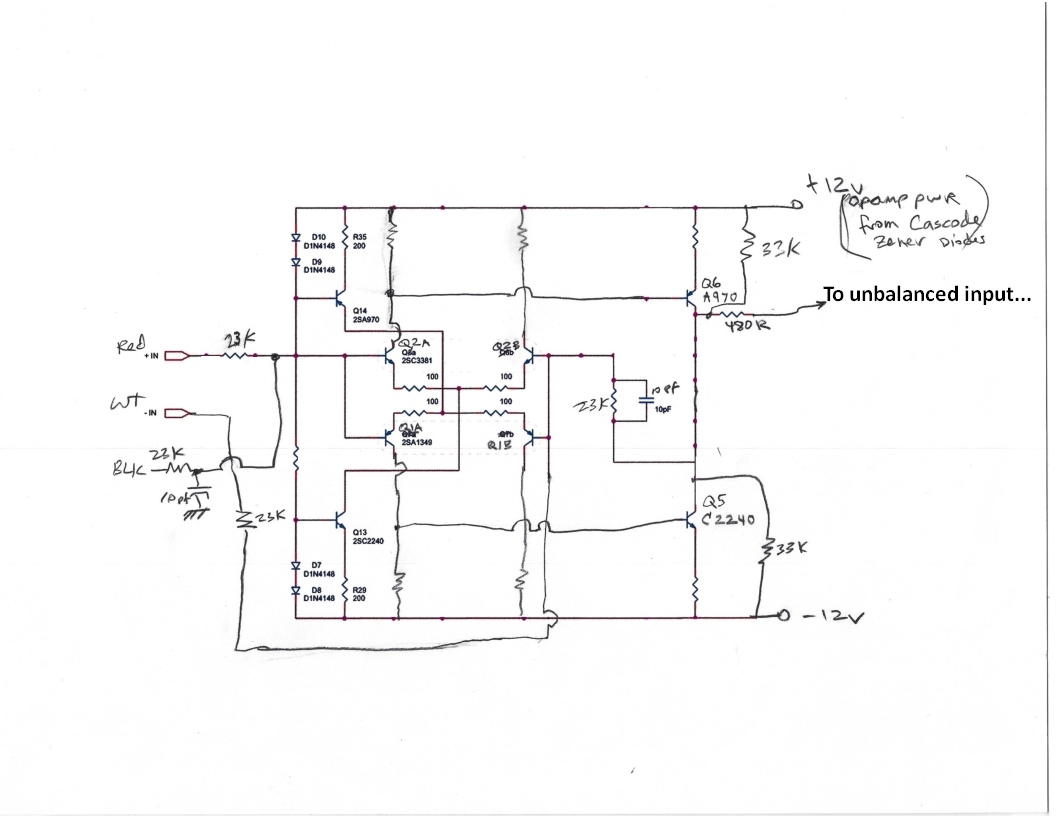 +12v
(opamp pwr
from Cascode
Zener Diodes)
D10
D1N4148
R35
200
D9
D1N4148
33K
Q6
A970
To unbalanced input...
Q14
2SA970
480R
Red
+IN
23K
Q2A
2SC3381
Q2B
100
100
100
100
23K
10pf
10pF
WT
-IN
Q1A
2SA1349
Q1B
23K
BLK
10pf
23K
Q5
C2240
Q13
2SC2240
33K
D7
D1N4148
D8
D1N4148
R29
200
-12v